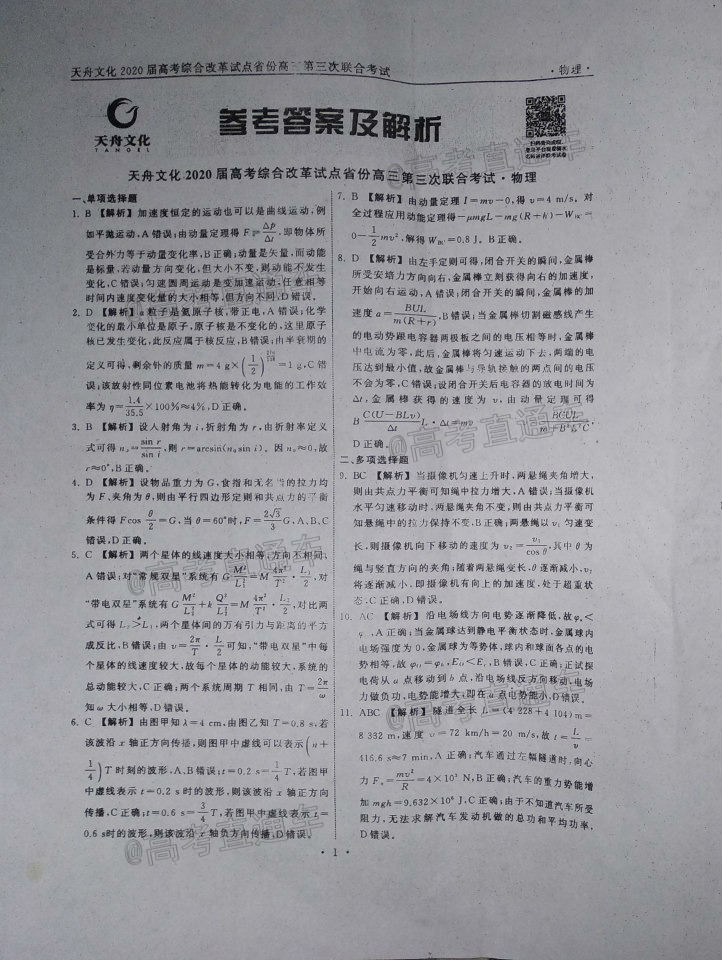 天舟文化2020届高考综合改革试点省份高三第三次联合考试
·物理·
天舟文化
TANGEL
参考答案及解析
天舟文化2020届高考综合改革试点省份高三第三次联合考试·物理
一、单项选择题
1. B 【解析】加速度恒定的运动也可以是曲线运动,例
如平抛运动,A错误;由动量定理得F=Δp/Δt,即物体所
受合外力等于动量变化率,B正确;动量是矢量,而动能
是标量,若动量方向变化,但大小不变,则动能不发生
变化,C错误;匀速圆周运动是变加速运动,任意相等
时间内速度变化量的大小相等,但方向不同,D错误。
2. D 【解析】α粒子是氦原子核,带正电,A错误;化学
变化的最小单位是原子,原子核是不变的,这里原子
核已发生变化,此反应属于核反应,B错误;由半衰期的
定义可得,剩余钋的质量m=4 g×(1/2)=1 g,C错
误;该放射性同位素电池将热能转化为电能的工作效
率为η=1.4/35.5×100%≈4%,D正确。
3. B 【解析】设入射角为i,折射角为r,由折射率定义
式可得n₀=sin r/sin i,则r=arcsin(n₀sin i)。因n₀≈0,故
r≈0°,B正确。
4. D 【解析】设物品重力为G,食指和无名指的拉力均
为F、夹角为θ,则由平行四边形定则和共点力的平衡
条件得Fcos θ/2=G,当θ=60°时,F=2√3/3 G,A、B、C
错误,D正确。
5. C 【解析】两个星体的线速度大小相等,方向不相同,
A错误;对“常规双星”系统有G M²/L₁²=M 4π²/T²·L₁/2,对
“带电双星”系统有G M²/L₂²+k Q²/L₂²=M 4π²/T²·L₂/2,对比两
式可得L₂>L₁,两个星体间的万有引力与距离的平方
成反比,B错误;由v=2π/T·L/2可知,“带电双星”中每
个星体的线速度较大,故每个星体的动能较大,系统的
总动能较大,C正确;两个系统周期T相同,由T=2π/ω
知ω大小相等,D错误。
6. C 【解析】由图甲知λ=4 cm,由图乙知T=0.8 s,若
该波沿x轴正方向传播,则图甲中虚线可以表示(n+
1/4)T时刻的波形,A、B错误;t=0.2 s=1/4 T,若图甲
中虚线表示t=0.2 s时的波形,则该波沿x轴正方向
传播,C正确;t=0.6 s=3/4 T,若图甲中虚线表示t=
0.6 s时的波形,则该波沿x轴负方向传播,D错误。
7. B 【解析】由动量定理I=mv-0,得v=4 m/s,对
全过程应用动能定理得-μmgL-mg(R+h)-W=
0-1/2 mv²,解得W=0.8 J。B正确。
8. D 【解析】由左手定则可得,闭合开关的瞬间,金属棒
所受安培力方向向右,金属棒立刻获得向右的加速度,
开始向右运动,A错误;闭合开关的瞬间,金属棒的加
速度a=BUL/m(R+r),B错误;当金属棒切割磁感线产生
的电动势跟电容器两极板之间的电压相等时,金属棒
中电流为零,此后,金属棒将匀速运动下去,两端的电
压达到最小值,故金属棒与导轨接触的两点间的电压
不会为零,C错误;设闭合开关后电容器的放电时间为
Δt,金属棒获得的速度为v,由动量定理可得
B C(U-BLv)/Δt L·Δt=mv
D正确。
二、多项选择题
9. BC 【解析】当摄像机匀速上升时,两悬绳夹角增大,
则由共点力平衡可知绳中拉力增大,A错误;当摄像机
水平匀速移动时,两悬绳夹角不变,则由共点力平衡可
知悬绳中的拉力保持不变,B正确;两悬绳以v₁匀速变
长,则摄像机向下移动的速度为v₂=v₁/cos θ,其中θ为
绳与竖直方向的夹角;随着两悬绳变长,θ逐渐减小,v₂
将逐渐减小,即摄像机有向上的加速度,处于超重状
态,C正确,D错误。
10. AC 【解析】沿电场线方向电势逐渐降低,故φ<
φ,A正确;当金属球达到静电平衡状态时,金属球内
电场强度为0,金属球为等势体,球内和球面各点的电
势相等,故,B错误,C正确;正试探
电荷从a点移动到b点,沿电场线反方向移动,电场
力做负功,电势能增大,即在a点电势能小,D错误。
11. ABC 【解析】隧道全长L=(4 228+4 104)m=
8 332 m,速度v=72 km/h=20 m/s,故t=L/v=
416.6 s≈7 min,A正确;汽车通过左幅隧道时,向心
力F=mv²/R=4×10³ N,B正确;汽车的重力势能增
加mgh=9.632×10⁶ J,C正确;由于不知道汽车所受
阻力,无法求解汽车发动机做的总功和平均功率,
D错误。
·1·
@高考直通车
@高考直通车
@高考直通车
@高考直通车
@高考直通车